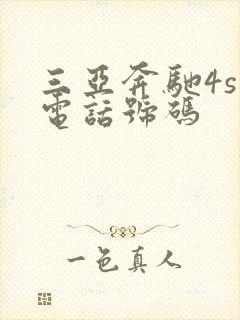 三亞奔馳4s
電話號碼
一色真人